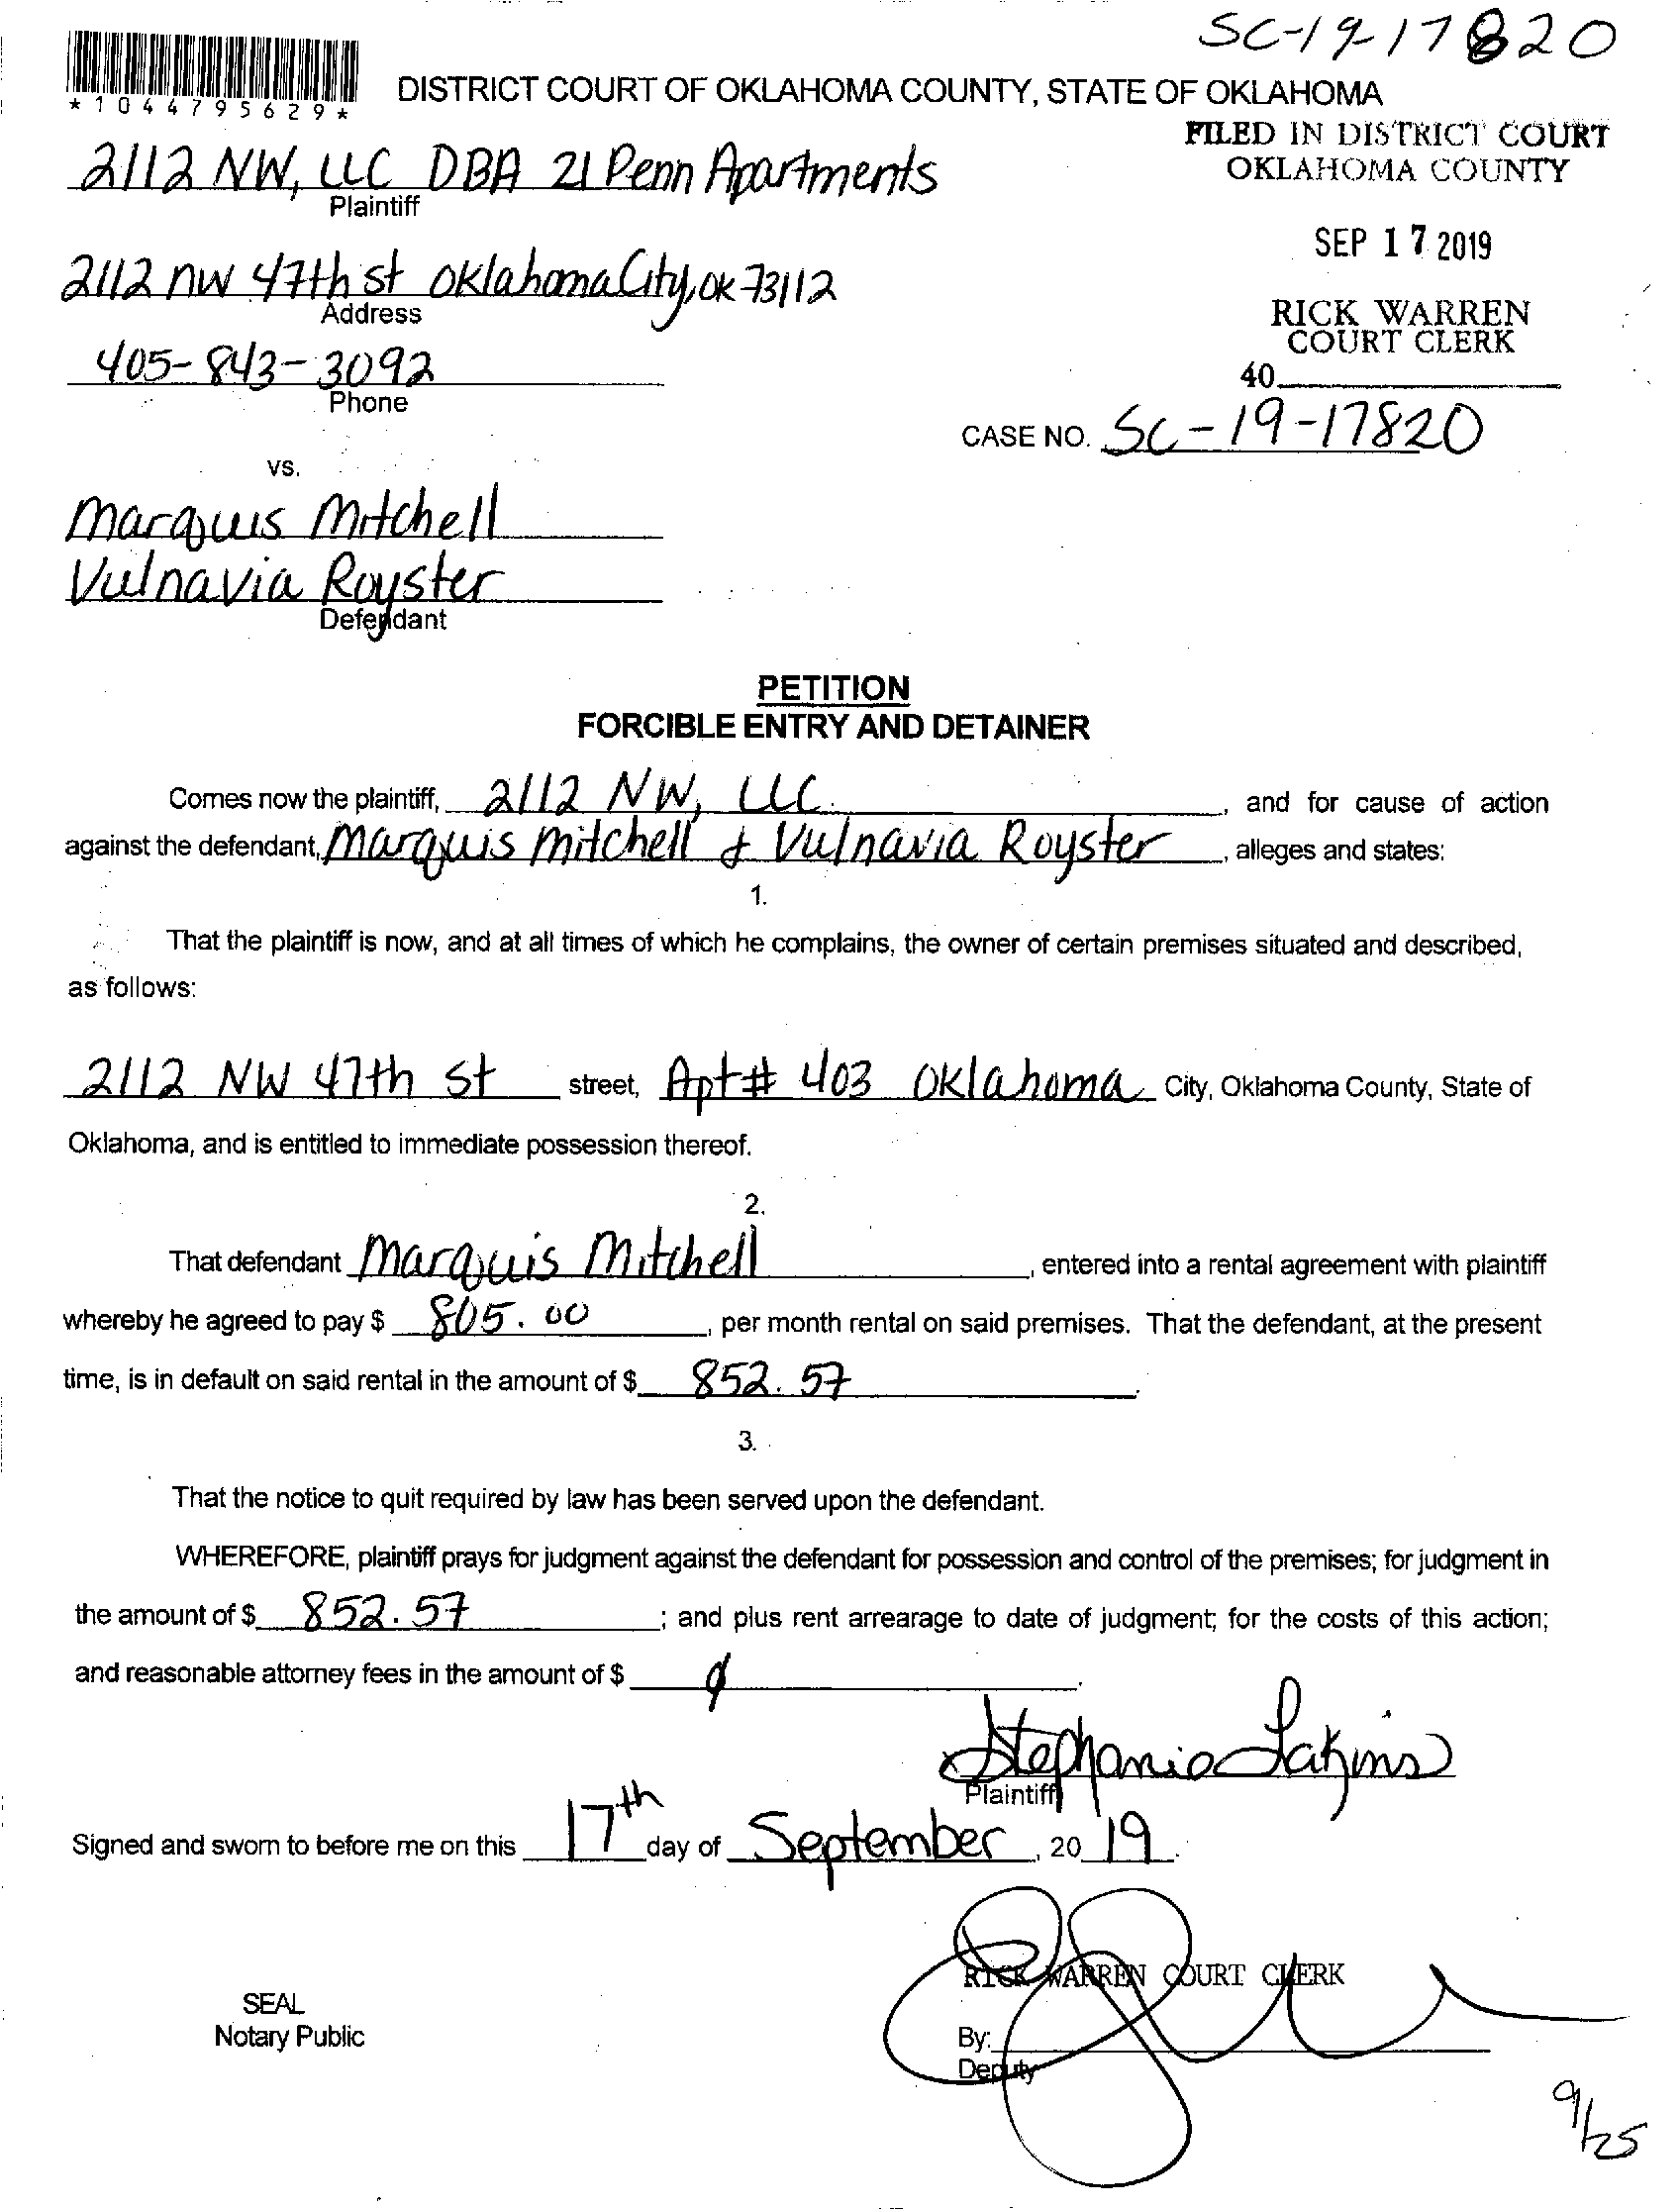 SC-19-17820
*1044795629*
DISTRICT COURT OF OKLAHOMA COUNTY, STATE OF OKLAHOMA
FILED IN DISTRICT COURT
OKLAHOMA COUNTY
2112 NW, LLC DBA 21 Penn Apartments
Plaintiff
SEP 17 2019
2112 NW 47th st Oklahoma City, OK 73112
Address
RICK WARREN
COURT CLERK
405-843-3092
Phone
40
CASE NO. SC-19-17820
vs.
Marquis Mitchell
Vulnavia Royster
Defendant
PETITION
FORCIBLE ENTRY AND DETAINER
Comes now the plaintiff, 2112 NW, LLC. , and for cause of action
against the defendant, Marquis Mitchell & Vulnavia Royster , alleges and states:
1.
That the plaintiff is now, and at all times of which he complains, the owner of certain premises situated and described,
as follows:
2112 NW 47th St street, Apt# 403 Oklahoma City, Oklahoma County, State of
Oklahoma, and is entitled to immediate possession thereof.
2.
That defendant Marquis Mitchell , entered into a rental agreement with plaintiff
whereby he agreed to pay $ 805.00 , per month rental on said premises. That the defendant, at the present
time, is in default on said rental in the amount of $ 852.57 .
3.
That the notice to quit required by law has been served upon the defendant.
WHEREFORE, plaintiff prays for judgment against the defendant for possession and control of the premises; for judgment in
the amount of $ 852.57 ; and plus rent arrearage to date of judgment; for the costs of this action;
and reasonable attorney fees in the amount of $ .
Stephanie Lakins
Plaintiff
Signed and sworn to before me on this 17th day of September , 20 19 .
RICK WARREN COURT CLERK
SEAL
Notary Public
By:
Deputy
9/25